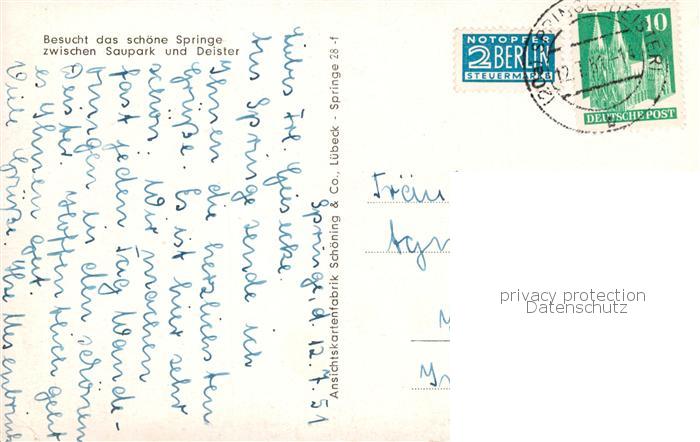 Besucht das schöne Springe
zwischen Saupark und Deister
NOTOPFER
2 BERLIN
STEUERMARKE
10
DEUTSCHE POST
SPRINGE (DEISTER)
Ansichtskartenfabrik Schöning & Co., Lübeck - Springe 28-f
Springe, d. 12.7.51
Liebes Frl. Giesecke.
Aus Springe sende ich
Ihnen die herzlichsten
Grüße. Es ist hier sehr
schön. Wir machen
fast jeden Tag Wande-
rungen in den schönen
Deister. Hoffentlich geht
es Ihnen gut.
Viele Grüße. Ihre
Fräu
Agn
privacy protection
Datenschutz